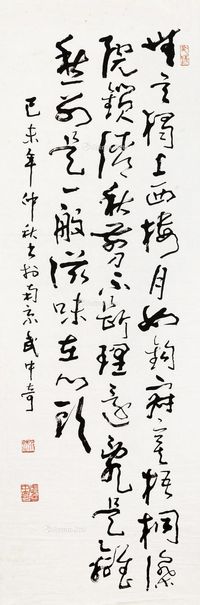 無言獨上西樓月如鈎寂寞梧桐深
院鎖清秋剪不斷理還亂是離
愁別是一般滋味在心頭
己未年仲秋書於南京武中奇